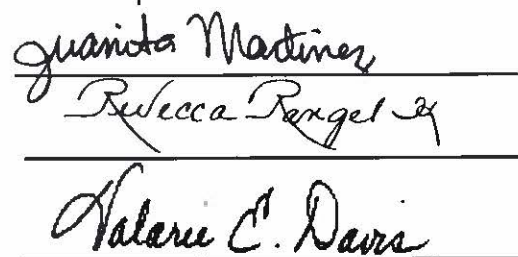 Juanita Martinez
Rebecca Rangel
Valarie C. Davis